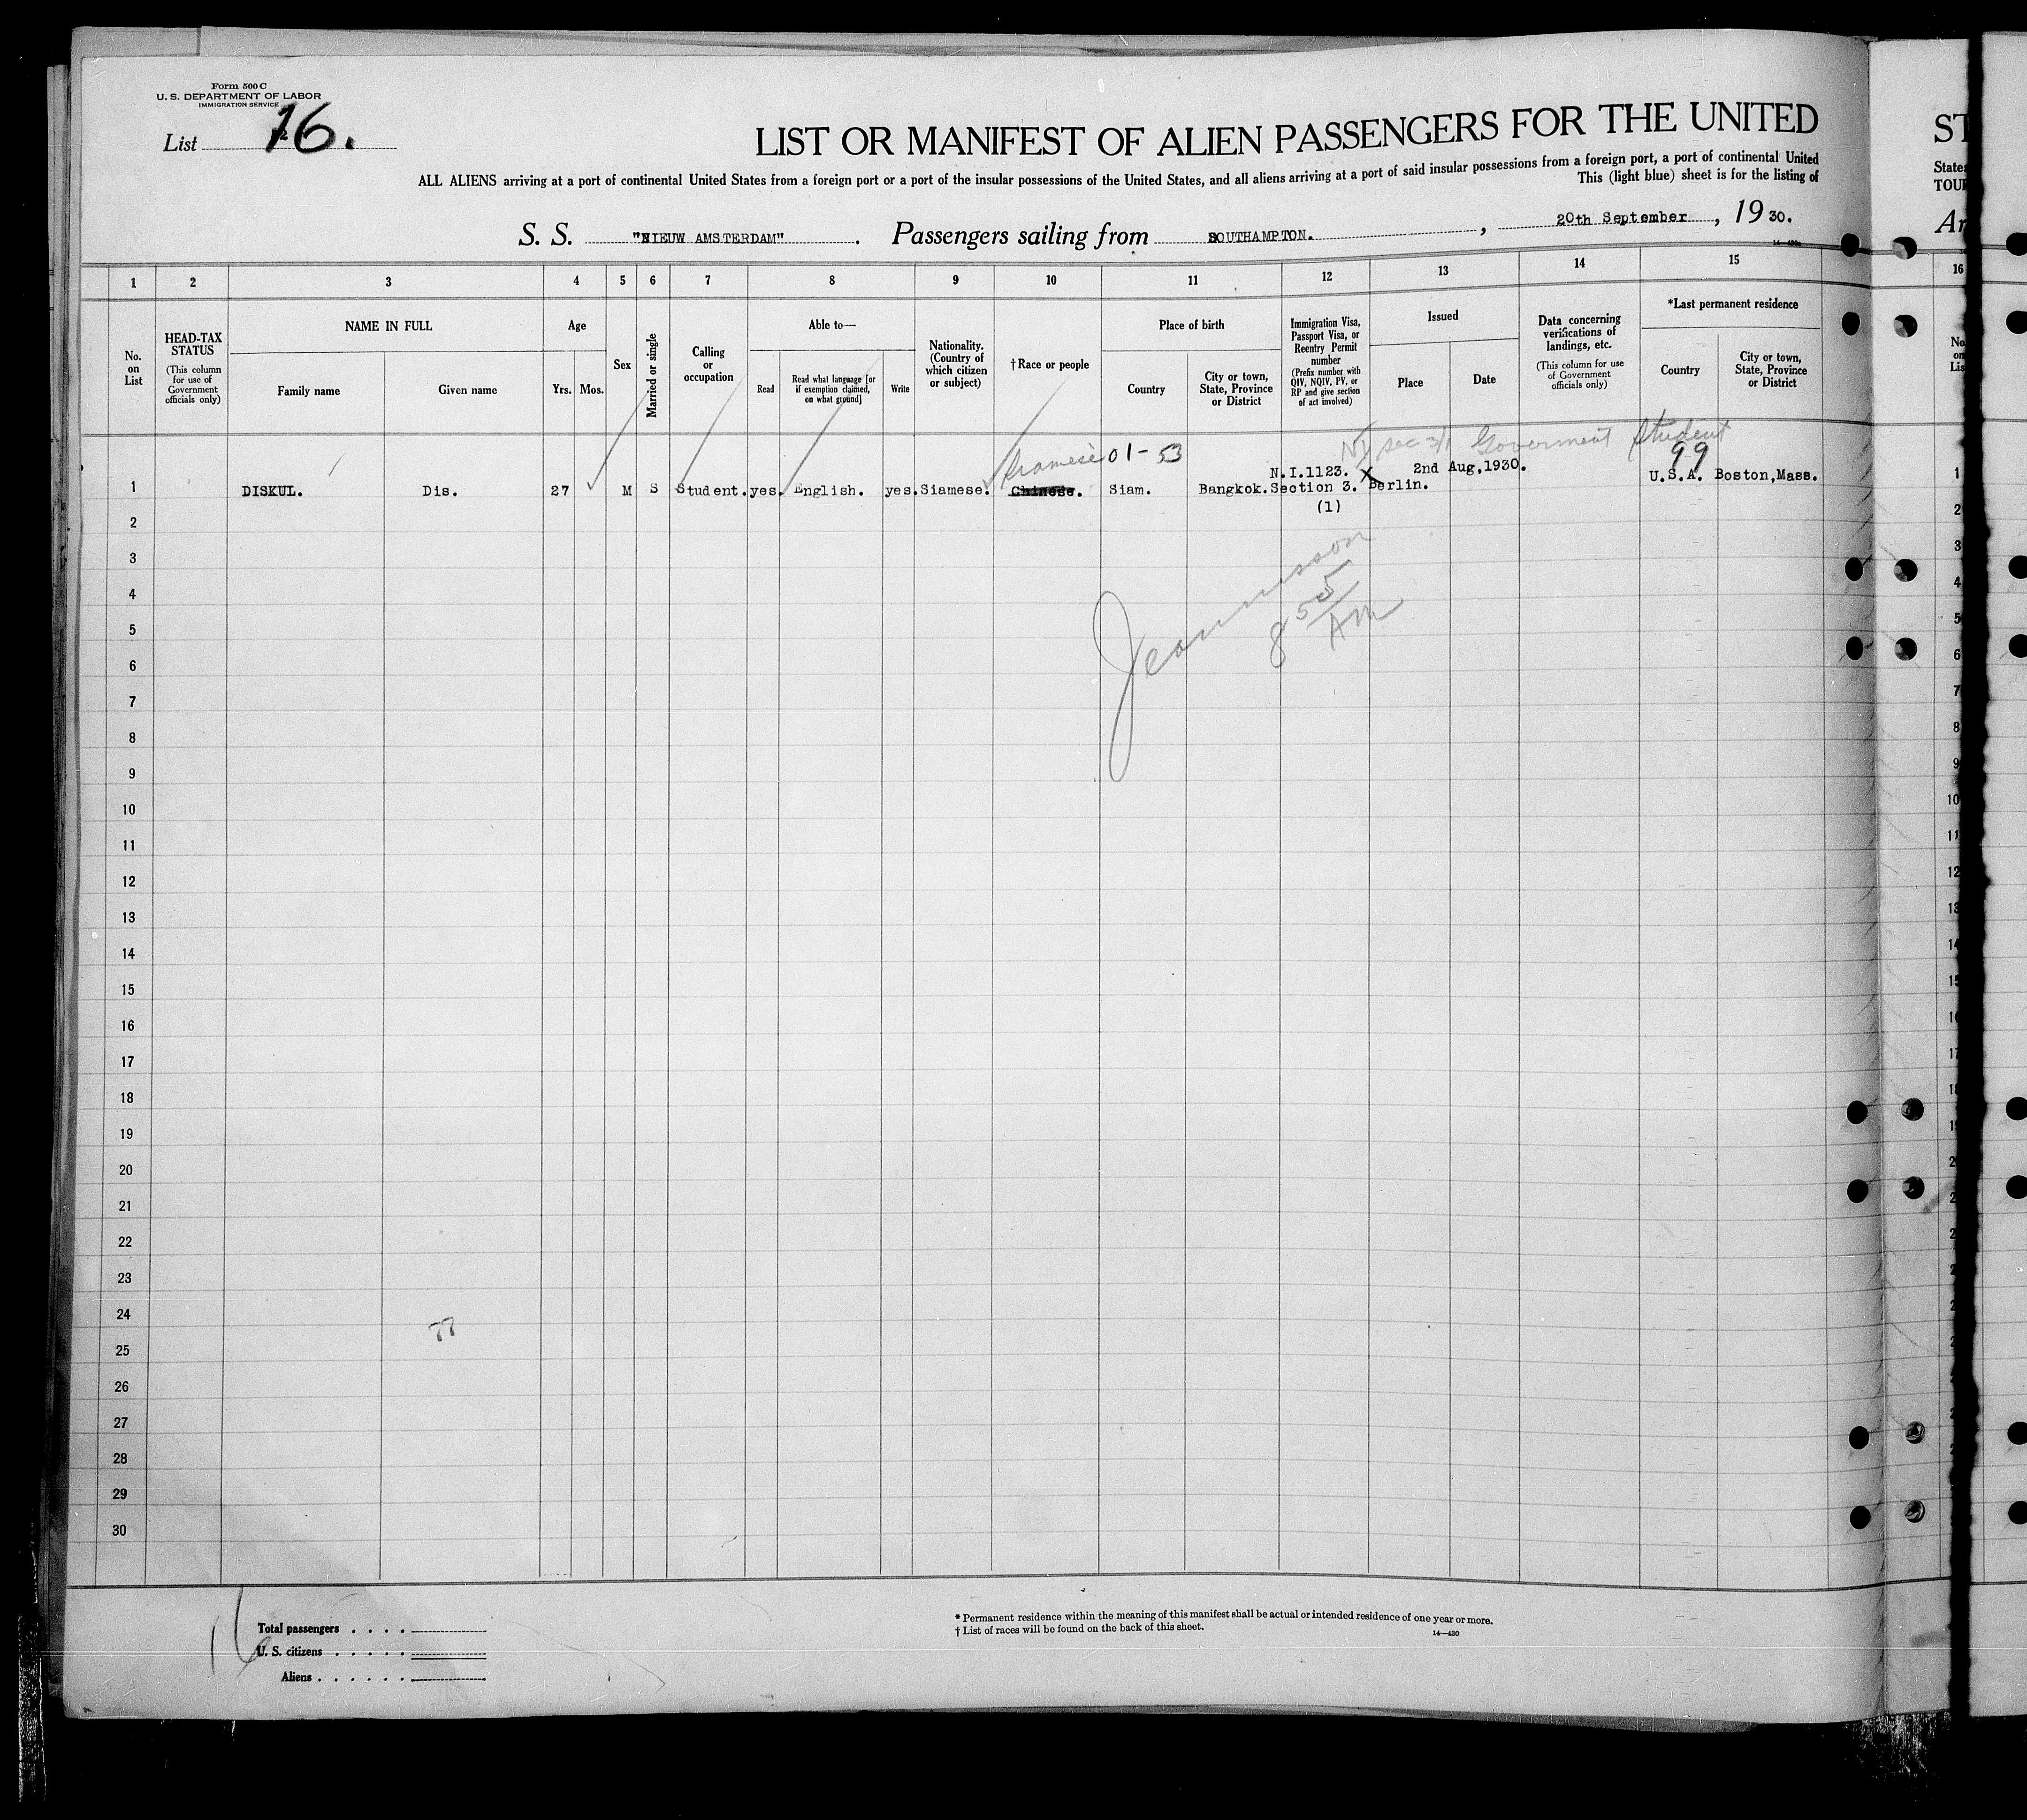 Form 500 C
U. S. DEPARTMENT OF LABOR
IMMIGRATION SERVICE
List 16.
LIST OR MANIFEST OF ALIEN PASSENGERS FOR THE UNITED
ALL ALIENS arriving at a port of continental United States from a foreign port or a port of the insular possessions of the United States, and all aliens arriving at a port of said insular possessions from a foreign port, a port of continental United
This (light blue) sheet is for the listing of
S. S. "NIEUW AMSTERDAM" . Passengers sailing from SOUTHAMPTON. , 20th September , 19 30.
1 2 3 4 5 6 7 8 9 10 11 12 13 14 15
No. on List
HEAD-TAX STATUS
(This column for use of Government officials only)
NAME IN FULL
Family name
Given name
Age
Yrs. Mos.
Sex
Married or single
Calling or occupation
Able to—
Read
Read what language [or if exemption claimed, on what ground]
Write
Nationality. (Country of which citizen or subject)
†Race or people
Place of birth
Country
City or town, State, Province or District
Immigration Visa, Passport Visa, or Reentry Permit number
(Prefix number with QIV, NQIV, PV, or RP and give section of act involved)
Issued
Place
Date
Data concerning verifications of landings, etc.
(This column for use of Government officials only)
*Last permanent residence
Country
City or town, State, Province or District
Goverment Student
Siamese 01-53
99
N.I.1123. X 2nd Aug,1930.
1 DISKUL. Dis. 27 M S Student. yes. English. yes. Siamese. Chinese. Siam. Bangkok. Section 3. Berlin. U.S.A. Boston,Mass.
(1)
2
3
4
5
6
7
8
9
10
11
12
13
14
15
16
17
18
19
20
21
22
23
24
25
26
27
28
29
30
8 55 AM
77
16
Total passengers
U. S. citizens
Aliens
* Permanent residence within the meaning of this manifest shall be actual or intended residence of one year or more.
† List of races will be found on the back of this sheet.
14—430
ST
States
TOU
Ar
16
No. on List